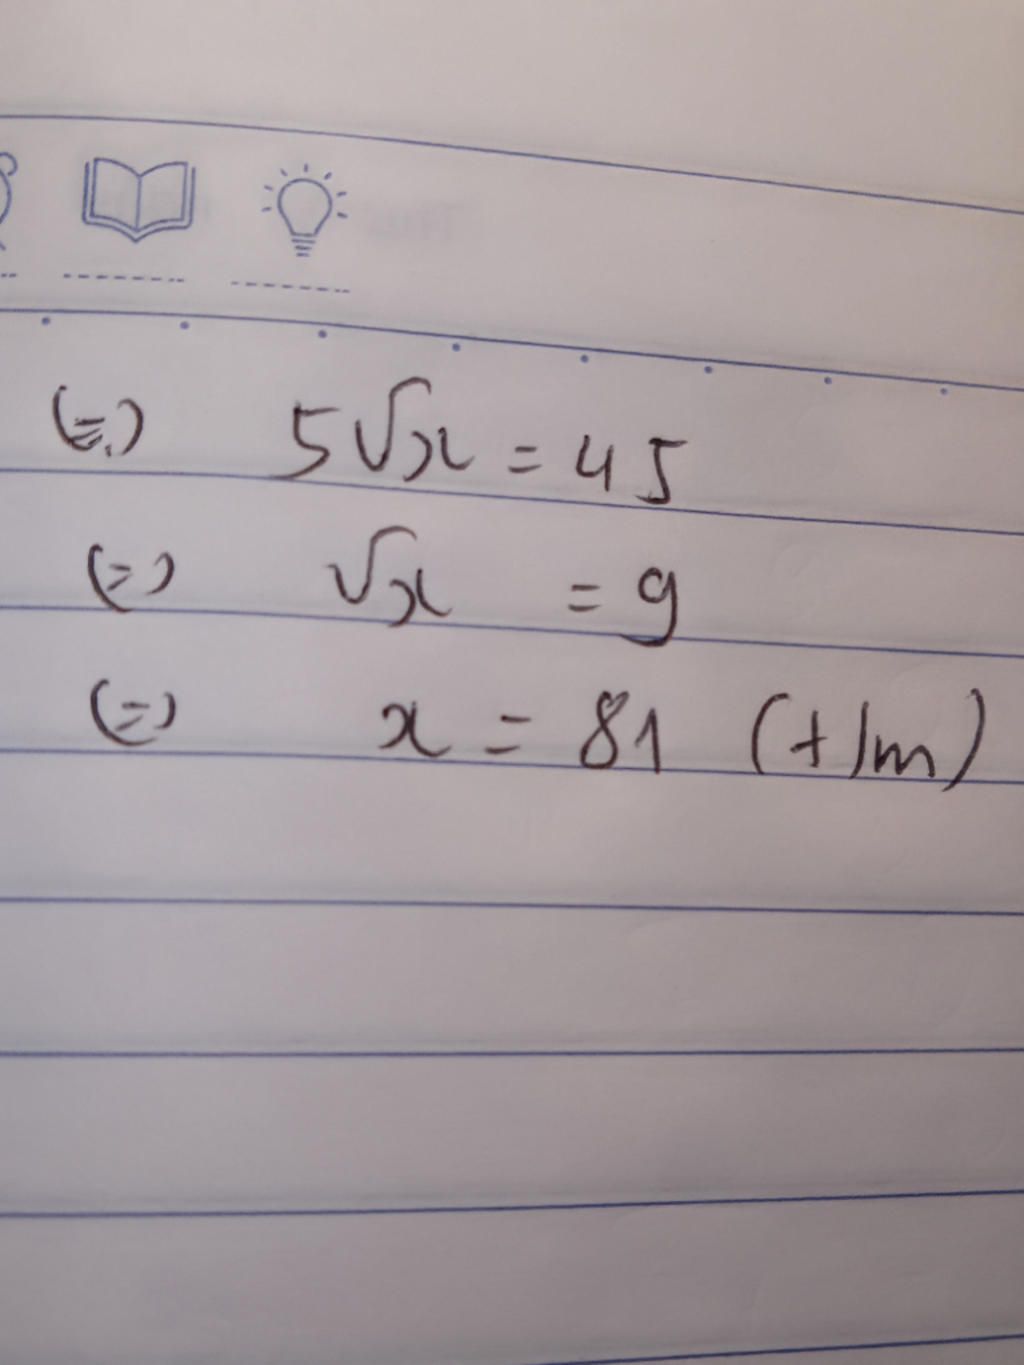 (=) 5√x = 45
(=) √x = 9
(=) x = 81 (t/m)